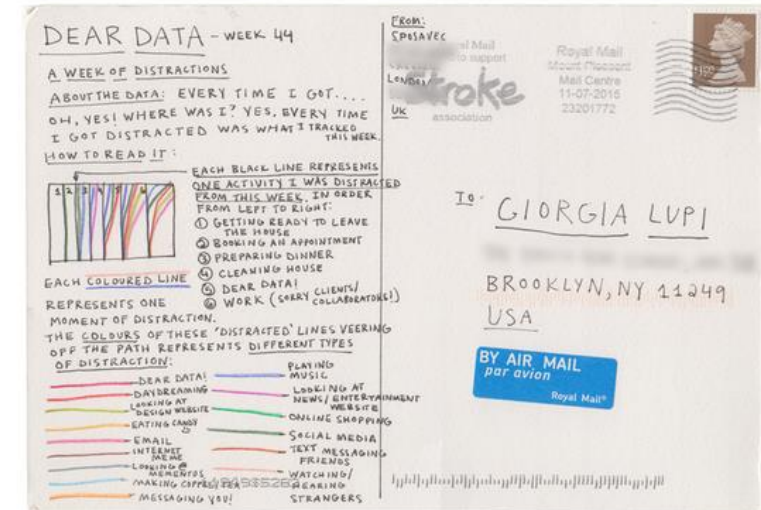 DEAR DATA - WEEK 44
A WEEK OF DISTRACTIONS
ABOUT THE DATA: EVERY TIME I GOT....
OH, YES! WHERE WAS I? YES, EVERY TIME
I GOT DISTRACTED WAS WHAT I TRACKED
THIS WEEK.
HOW TO READ IT:
1 2 3 4 5 6
EACH BLACK LINE REPRESENTS
ONE ACTIVITY I WAS DISTRACTED
FROM THIS WEEK, IN ORDER
FROM LEFT TO RIGHT:
① GETTING READY TO LEAVE
THE HOUSE
② BOOKING AN APPOINTMENT
③ PREPARING DINNER
④ CLEANING HOUSE
⑤ DEAR DATA!
⑥ WORK (SORRY CLIENTS/
COLLABORATORS!)
EACH COLOURED LINE
REPRESENTS ONE
MOMENT OF DISTRACTION.
THE COLOURS OF THESE 'DISTRACTED' LINES VEERING
OFF THE PATH REPRESENTS DIFFERENT TYPES
OF DISTRACTION:
DEAR DATA!
DAYDREAMING
LOOKING AT
DESIGN WEBSITE
EATING CANDY
EMAIL
INTERNET
MEME
LOOKING @
MEMENTOS
MAKING COFFEE/TEA
MESSAGING YOU!
PLAYING
MUSIC
LOOKING AT
NEWS/ENTERTAINMENT
WEBSITE
ONLINE SHOPPING
SOCIAL MEDIA
TEXT MESSAGING
FRIENDS
WATCHING/
HEARING
STRANGERS
FROM:
SPOSAVEC
LONDON
UK
Mail
to support
Stroke
association
Royal Mail
Mount Pleasant
Mail Centre
11-07-2015
23201772
TO:
GIORGIA LUPI
BROOKLYN, NY 11249
USA
BY AIR MAIL
par avion
Royal Mail®